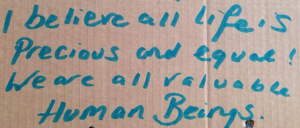 I believe all life is
Precious and equal!
We are all valuable
Human Beings.